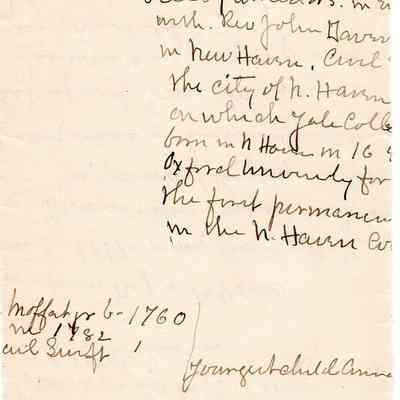 with. Rev John Daven
in New Haven. Civil
the city of N. Haven
on which Yale Coll
born in N Haven in 16
Oxford University for
the first permanen
in the N. Haven Co
Moffat jr b- 1760
m 1782
Swift 1
Youngest child Anna